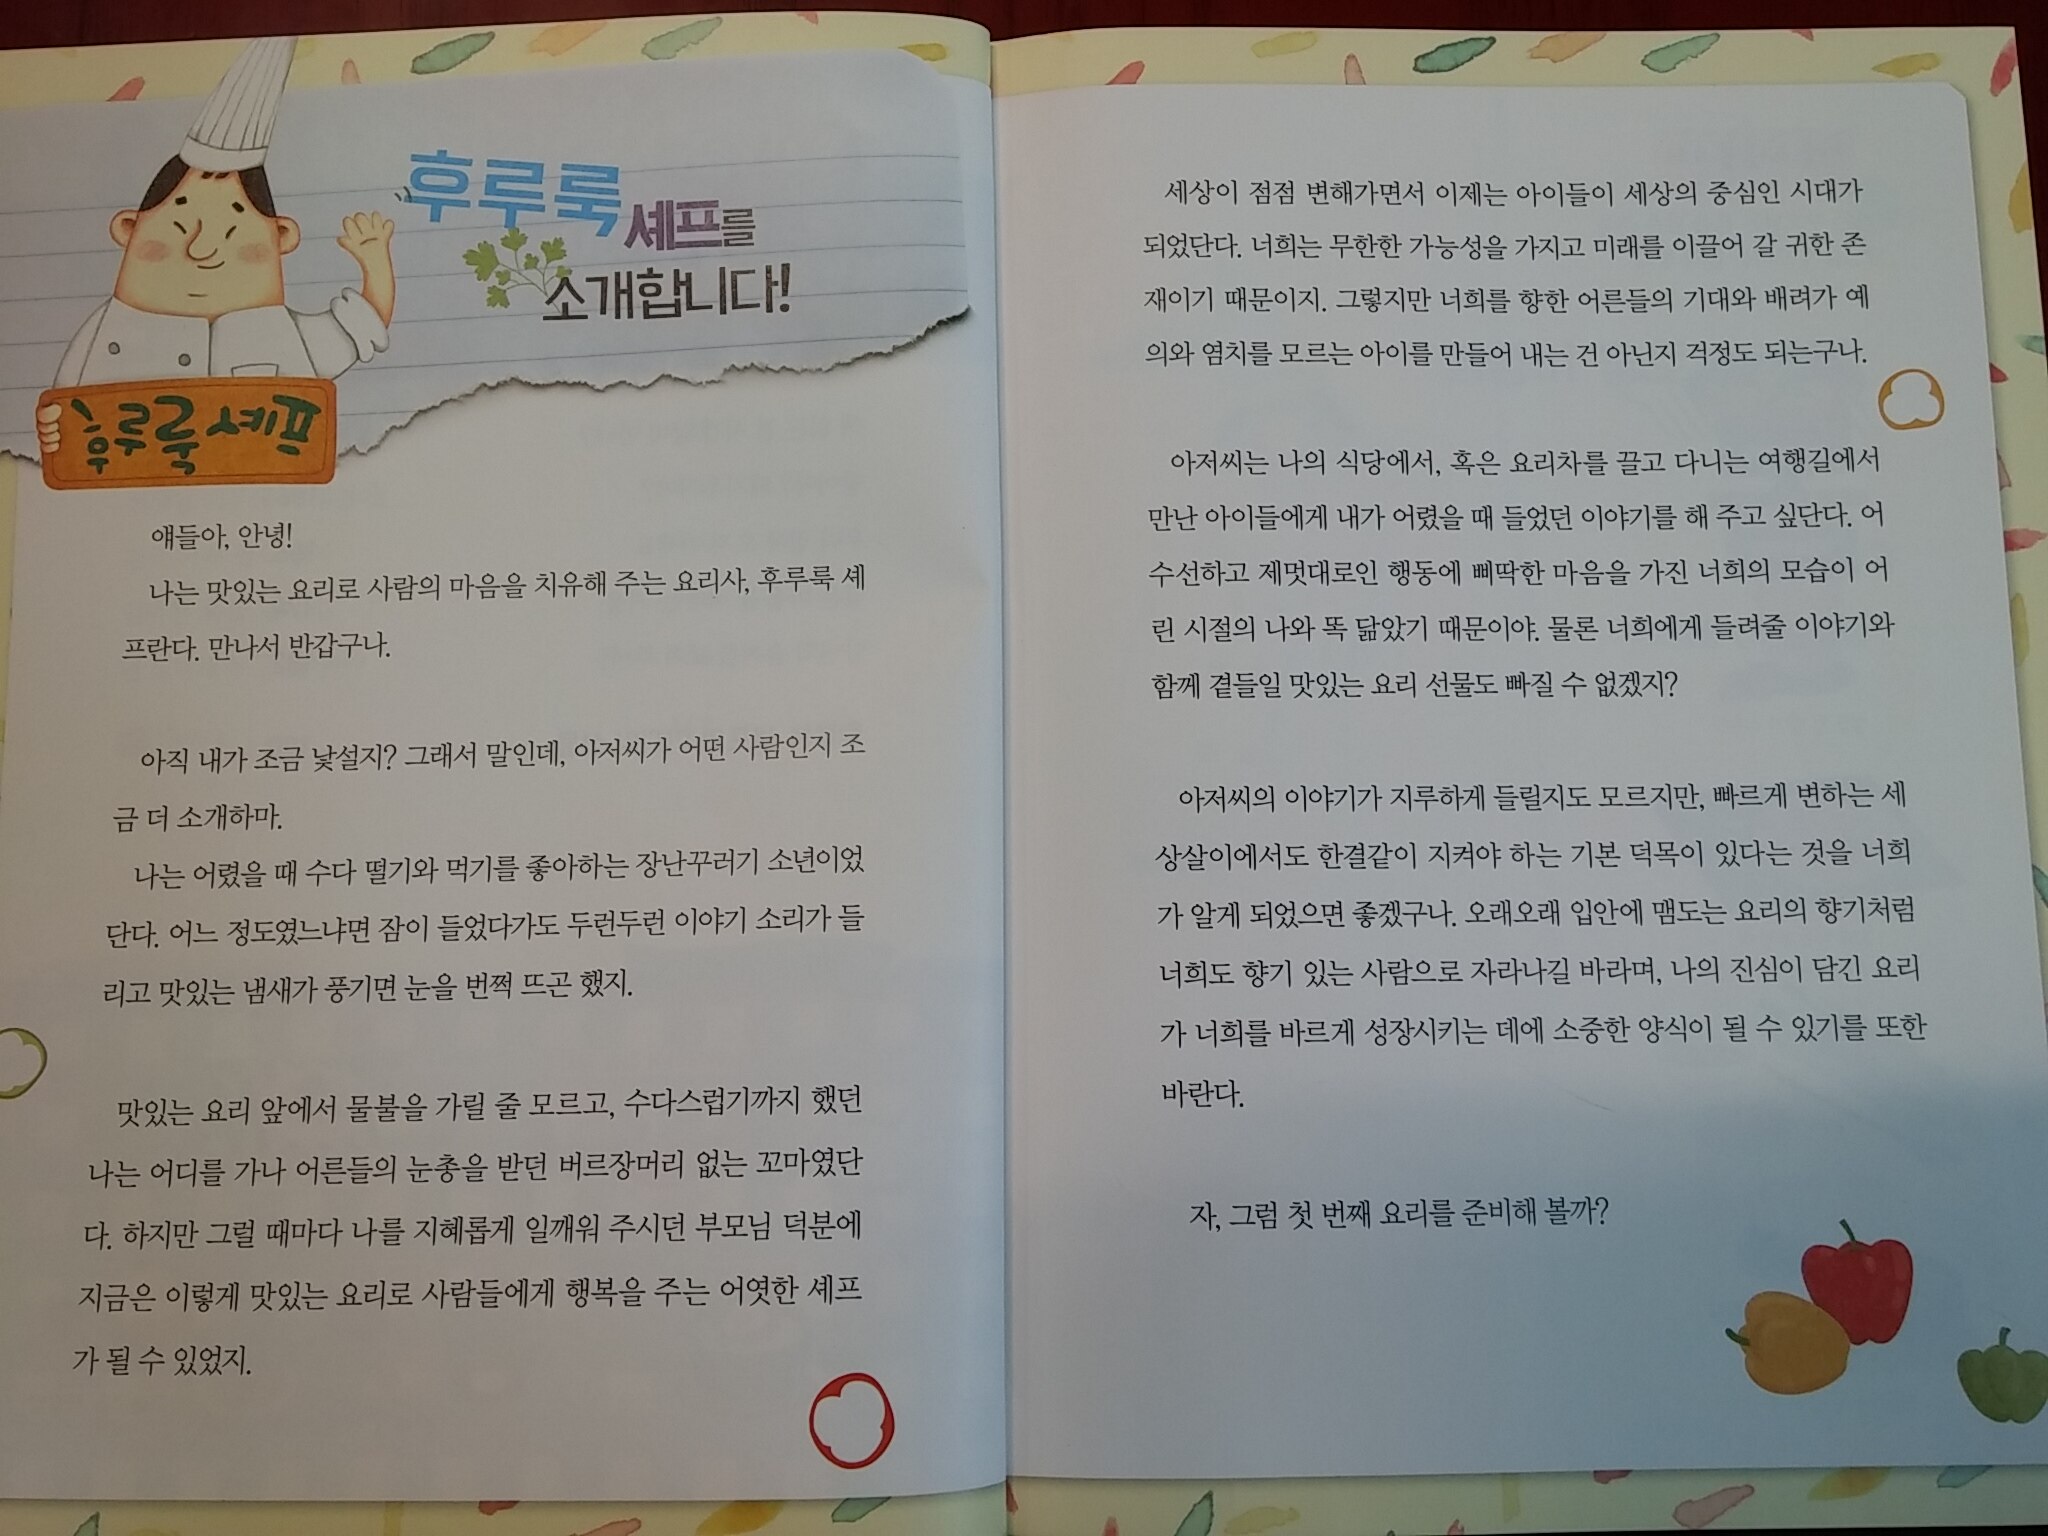 후루룩
셰프를
소개합니다!
후루룩 셰프
얘들아, 안녕!
나는 맛있는 요리로 사람의 마음을 치유해 주는 요리사, 후루룩 셰
프란다. 만나서 반갑구나.
아직 내가 조금 낯설지? 그래서 말인데, 아저씨가 어떤 사람인지 조
금 더 소개하마.
나는 어렸을 때 수다 떨기와 먹기를 좋아하는 장난꾸러기 소년이었
단다. 어느 정도였느냐면 잠이 들었다가도 두런두런 이야기 소리가 들
리고 맛있는 냄새가 풍기면 눈을 번쩍 뜨곤 했지.
맛있는 요리 앞에서 물불을 가릴 줄 모르고, 수다스럽기까지 했던
나는 어디를 가나 어른들의 눈총을 받던 버르장머리 없는 꼬마였단
다. 하지만 그럴 때마다 나를 지혜롭게 일깨워 주시던 부모님 덕분에
지금은 이렇게 맛있는 요리로 사람들에게 행복을 주는 어엿한 셰프
가 될 수 있었지.
세상이 점점 변해가면서 이제는 아이들이 세상의 중심인 시대가
되었단다. 너희는 무한한 가능성을 가지고 미래를 이끌어 갈 귀한 존
재이기 때문이지. 그렇지만 너희를 향한 어른들의 기대와 배려가 예
의와 염치를 모르는 아이를 만들어 내는 건 아닌지 걱정도 되는구나.
아저씨는 나의 식당에서, 혹은 요리차를 끌고 다니는 여행길에서
만난 아이들에게 내가 어렸을 때 들었던 이야기를 해 주고 싶단다. 어
수선하고 제멋대로인 행동에 삐딱한 마음을 가진 너희의 모습이 어
린 시절의 나와 똑 닮았기 때문이야. 물론 너희에게 들려줄 이야기와
함께 곁들일 맛있는 요리 선물도 빠질 수 없겠지?
아저씨의 이야기가 지루하게 들릴지도 모르지만, 빠르게 변하는 세
상살이에서도 한결같이 지켜야 하는 기본 덕목이 있다는 것을 너희
가 알게 되었으면 좋겠구나. 오래오래 입안에 맴도는 요리의 향기처럼
너희도 향기 있는 사람으로 자라나길 바라며, 나의 진심이 담긴 요리
가 너희를 바르게 성장시키는 데에 소중한 양식이 될 수 있기를 또한
바란다.
자, 그럼 첫 번째 요리를 준비해 볼까?